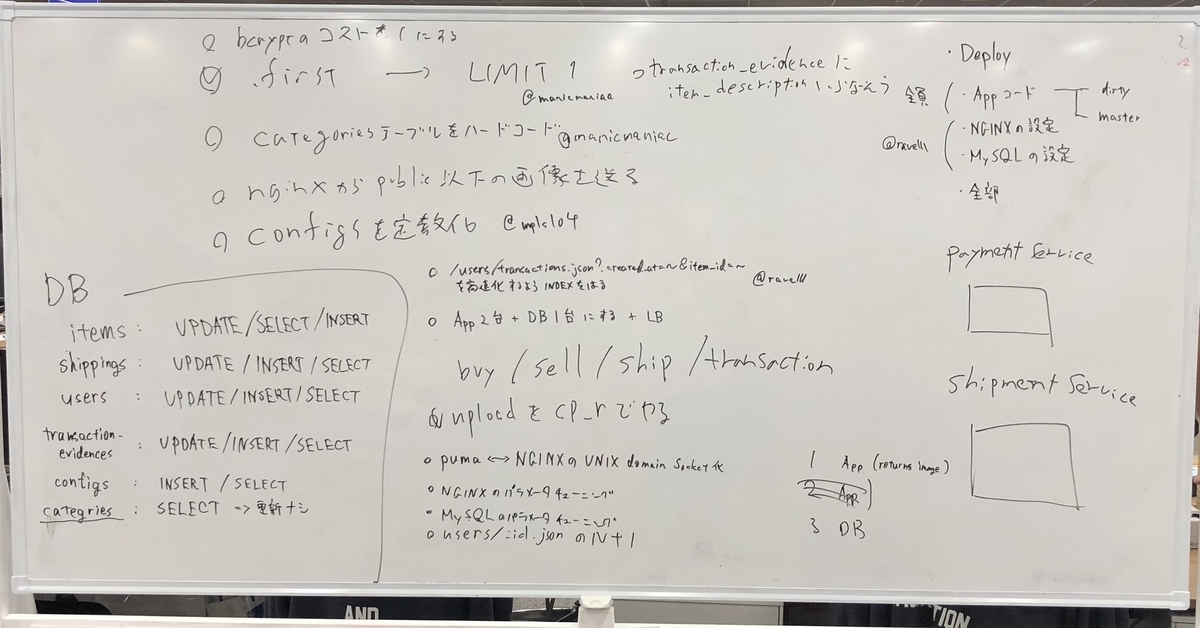 bcryptのコストを1にする
.first → LIMIT 1
@manicmaniac
categoriesテーブルをハードコード @manicmaniac
nginxから public 以下の画像を送る
configsを定数化 @mplc104
transaction_evidenceに
item_description いらなそう
・Deploy
全員
・Appコード
dirty
master
@ravelll
・NGINXの設定
・MySQLの設定
・全部
payment service
shipment service
DB
items: UPDATE/SELECT/INSERT
shippings: UPDATE/INSERT/SELECT
users: UPDATE/INSERT/SELECT
transaction-
evidences: UPDATE/INSERT/SELECT
configs: INSERT/SELECT
categries: SELECT => 更新ナシ
/users/transactions.json?created_at=~&item_id=~
を高速化するよう INDEXをはる
@ravelll
App 2台 + DB 1台にする + LB
buy/sell/ship/transaction
uploadを cp_r でやる
puma <-> NGINXの UNIX domain socket化
NGINXのパラメータチューニング
MySQLのパラメータチューニング
users/:id.json の N+1
1 App (returns image)
2 App
3 DB
AND